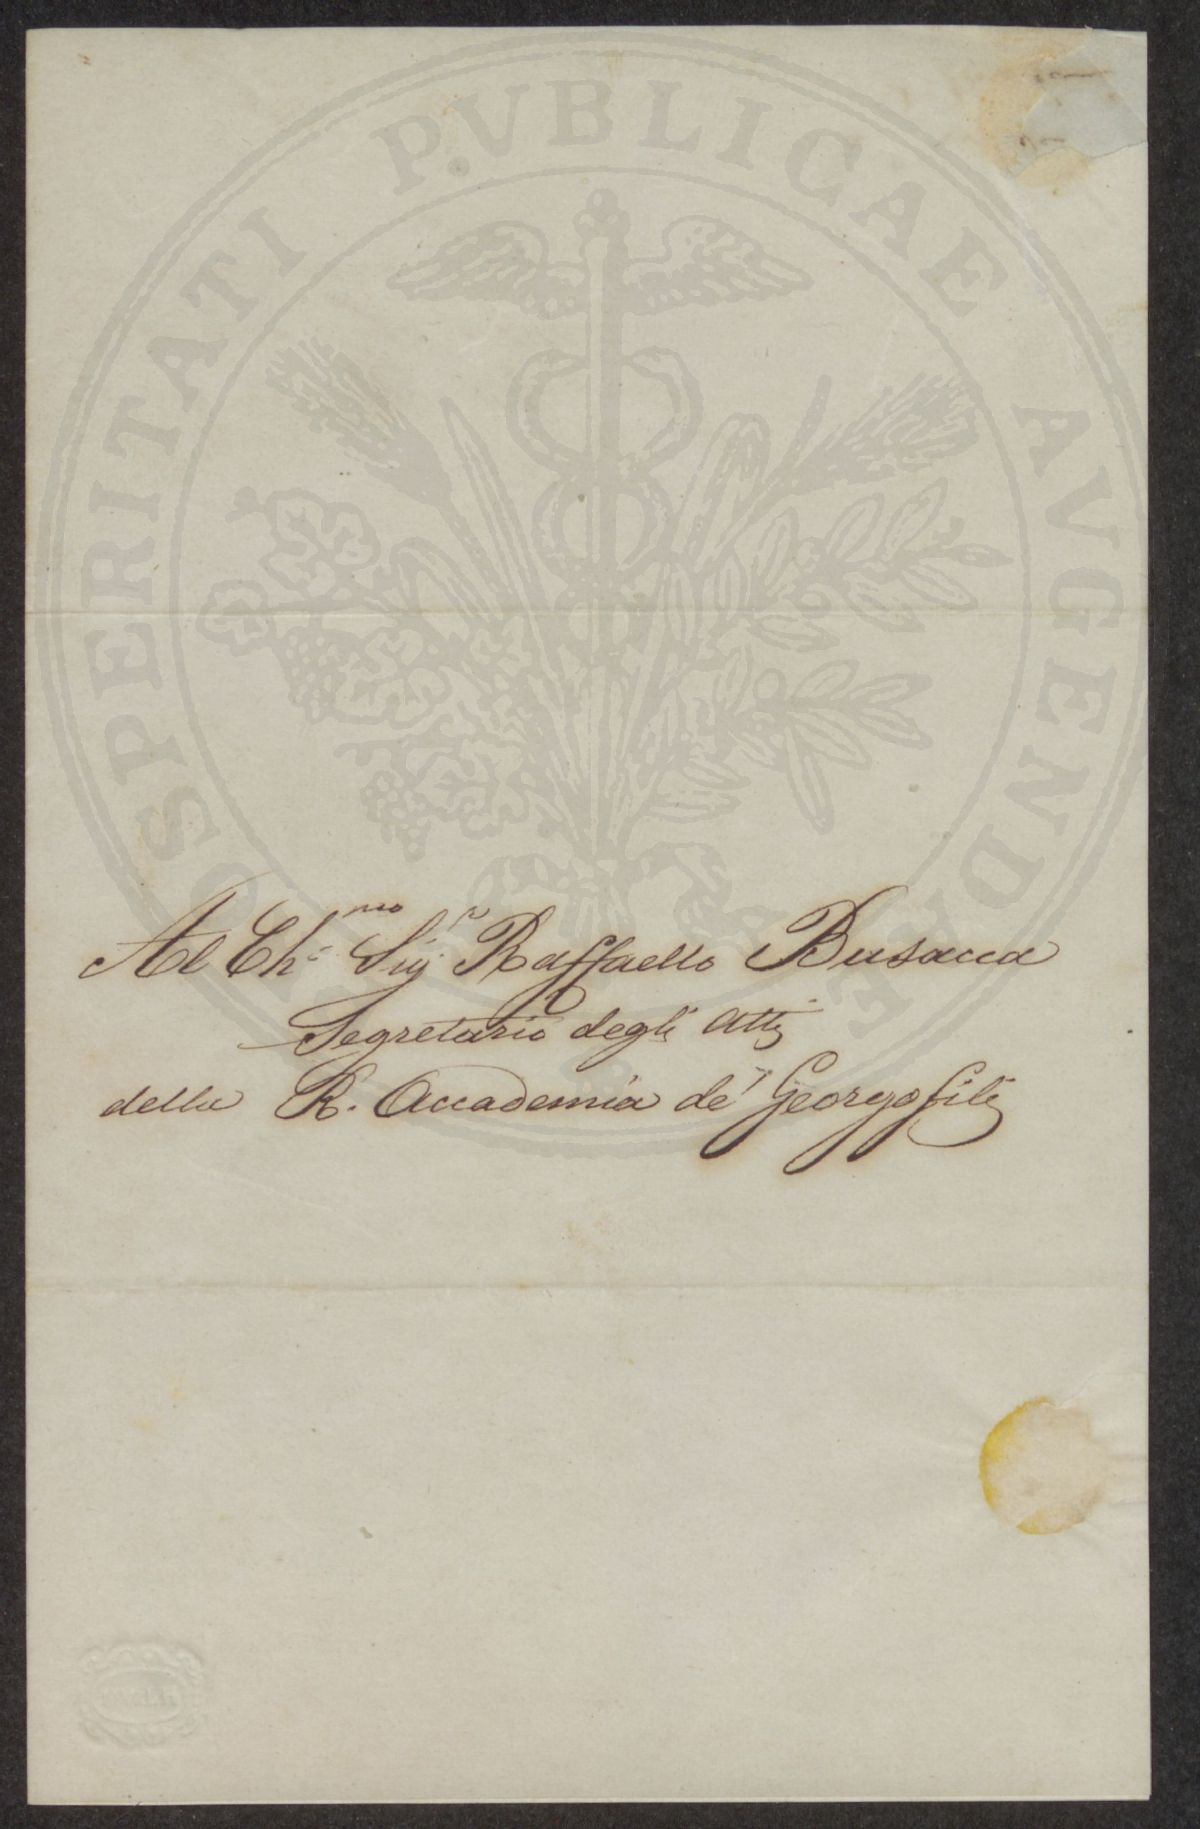 PROSPERITATI P.VBLICAE AVGENDAE
Al Ch.mo Sigr Raffaello Busacca
Segretario degli Atti
della R. Accademia de' Georgofili